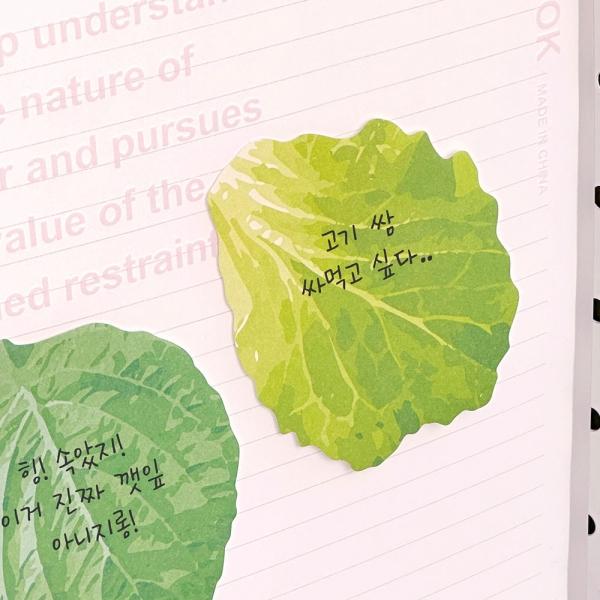 p understan
e nature of
r and pursues
value of the
ned restraint
OK
MADE IN CHINA
고기 쌈
싸먹고 싶다..
헹! 속았지!
이거 진짜 깻잎
아니지롱!